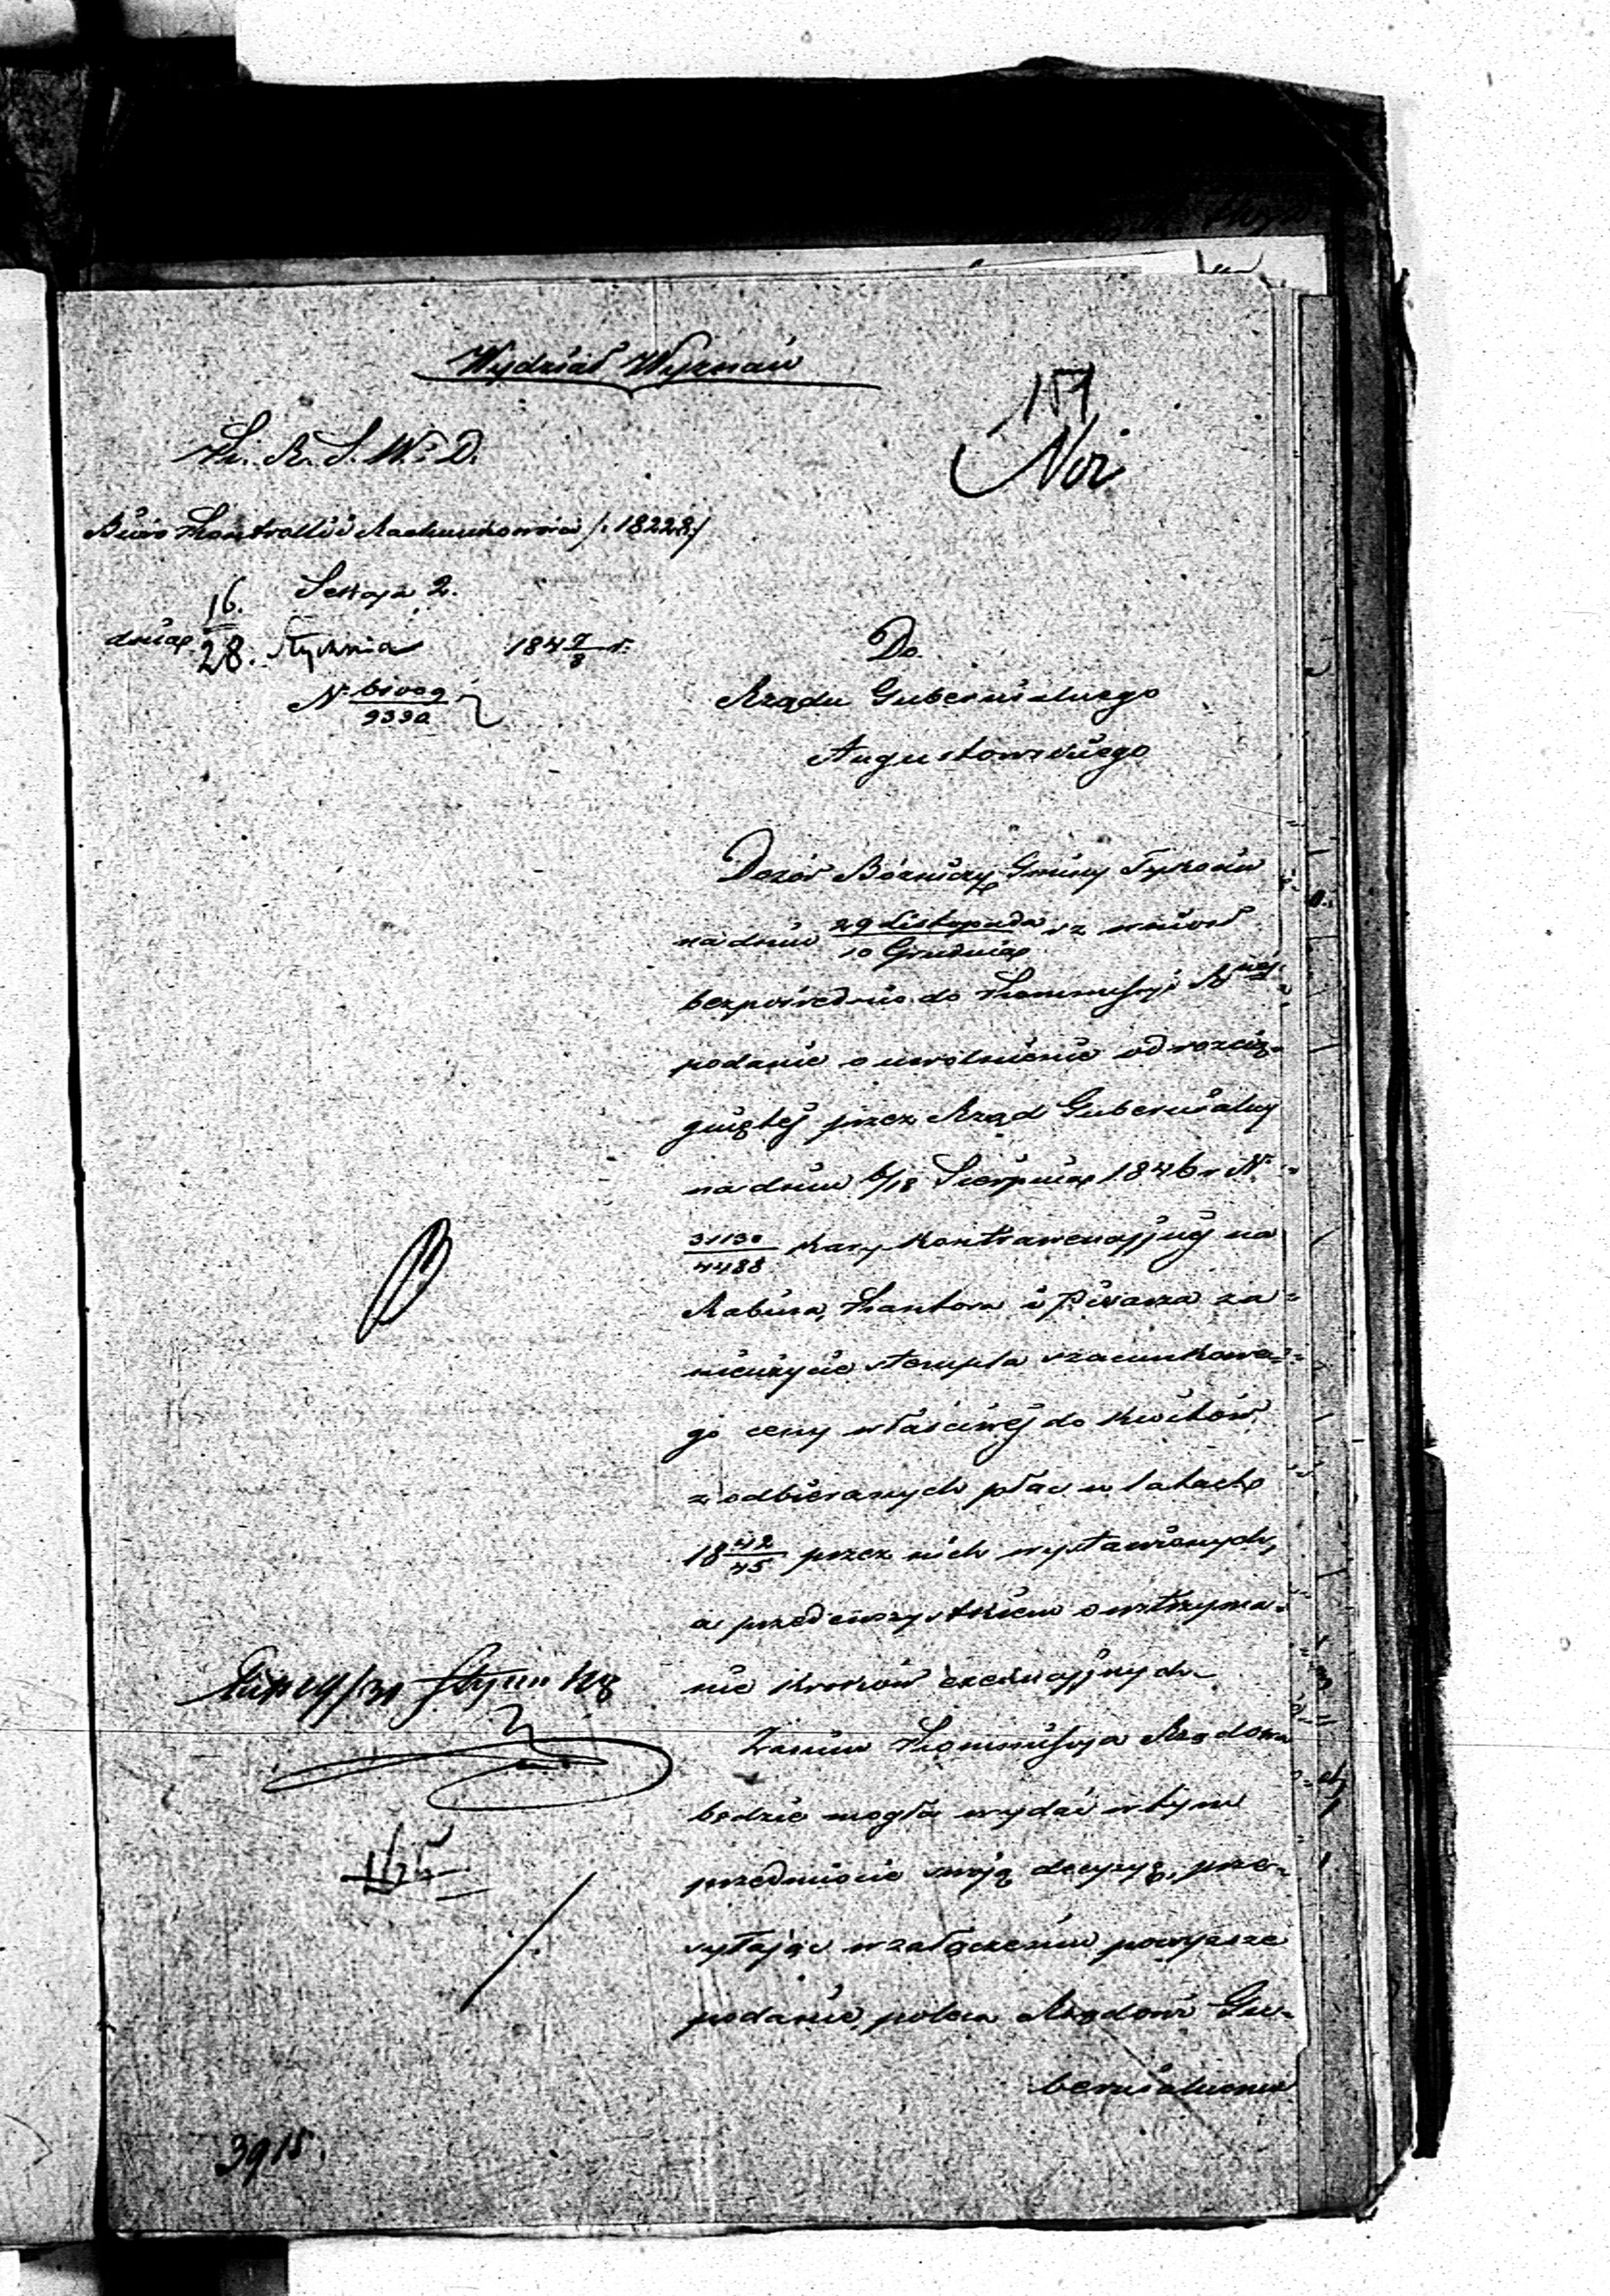 Wydział Wyznań
157
K. R. S. W. i D.
Biuro Kontrolli i Rachunkowości /: 18228 :/
Sekcja 2.
dnia 16/28. Stycznia 1847/8 r.
N°
9390
Do
Rządu Gubernialnego
Augustowskiego
Dozór Bóżniczy Gminy Tykocin
na dniu 29 Listopada/10 Grudnia r. z. wniósł
bezpośrednio do Kommissyi R^nej
podanie o uwolnienie od rozcią=
gniętej przez Rząd Gubernialny
na dniu 6/18 Sierpnia 1846 r. N°
31130/4488 kary kontrawencyjnej na
Rabina, Kantora i Pisarza za
nieużycie stempla szacunkowe=
go ceny właściwej do kwitów
z odbieranych płac w latach
18 42/45 przez nich wystawionych,
a przedewszystkiem o wstrzyma=
nie kroków exekucyjnych.
Zanim Kommissya Rządowa
będzie mogła wydać w tym
przedmiocie swoją decyzyę, prze=
syłając w załączeniu powyższe
podanie, poleca Rządowi Gu=
bernialnemu
3915.